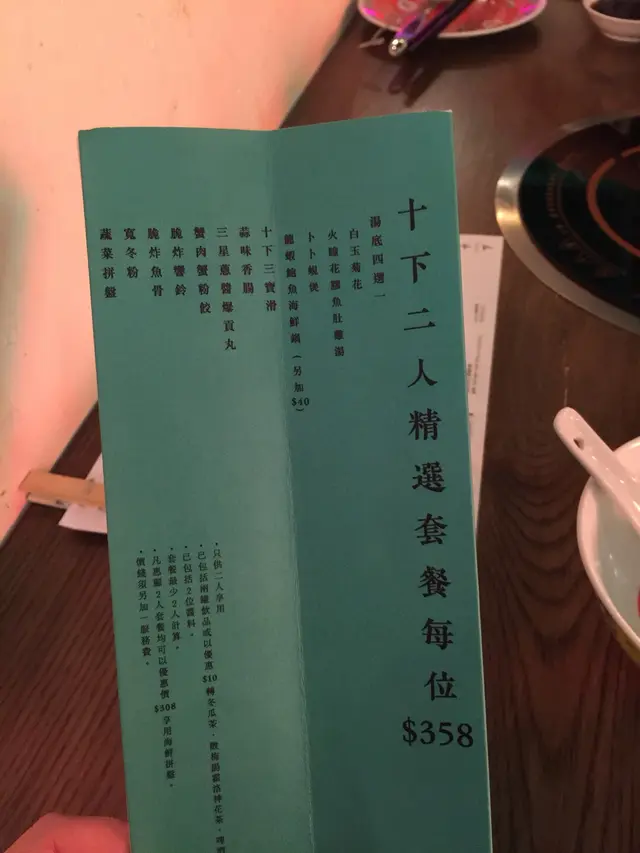 十下二人精選套餐每位
$358
湯底四選一
白玉菊花
火瞳花膠魚肚雞湯
卜卜蜆煲
龍蝦鮑魚海鮮鍋（另加$40）
十下三寶滑
蒜味香腸
三星蔥醬爆貢丸
蟹肉蟹粉餃
脆炸響鈴
脆炸魚骨
寬冬粉
蔬菜拼盤
・只供二人享用
・已包括兩罐飲品或以優惠$10轉冬瓜茶、酸梅湯
・已包括2位醬料。
・套餐最少2人計算。
・凡惠顧2人套餐均可以優惠價$508享用海鮮拼盤。
・價錢須另加一服務費。